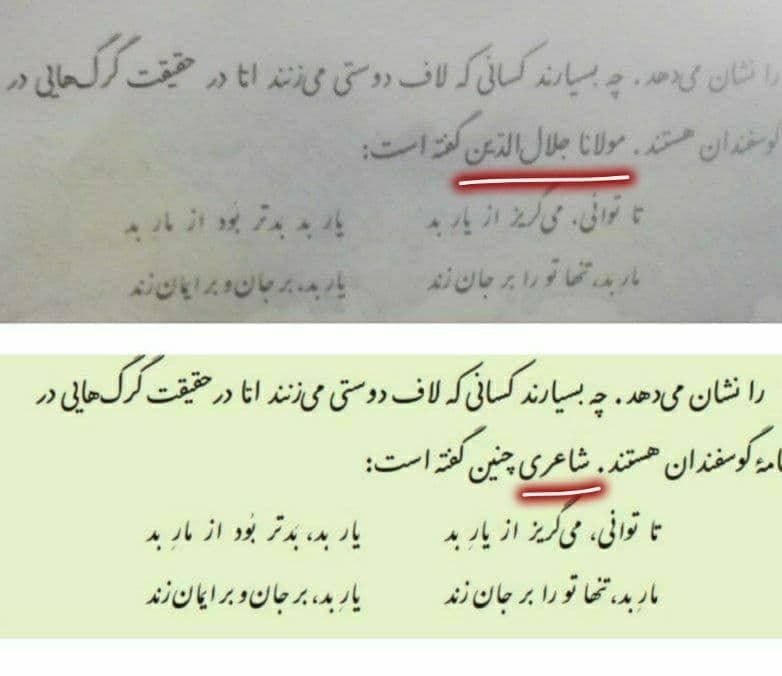 را نشان می‌دهد. چه بسیارند کسانی که لاف دوستی می‌زنند امّا در حقیقت گرگ‌هایی در
گوسفندان هستند. مولانا جلال‌الدّین گفته است:
تا توانی، می‌گریز از یار بد یار بد بدتر بُوَد از مار بد
مار بد، تنها تو را بر جان زند یار بد، بر جان و بر ایمان زند
را نشان می‌دهد. چه بسیارند کسانی که لاف دوستی می‌زنند امّا در حقیقت گرگ‌هایی در
گوسفندان هستند. شاعری چنین گفته است:
تا توانی، می‌گریز از یارِ بد یار بد، بَدتر بُوَد از مارِ بد
مارِ بد، تنها تو را بر جان زند یارِ بد، بر جان و بر ایمان زند